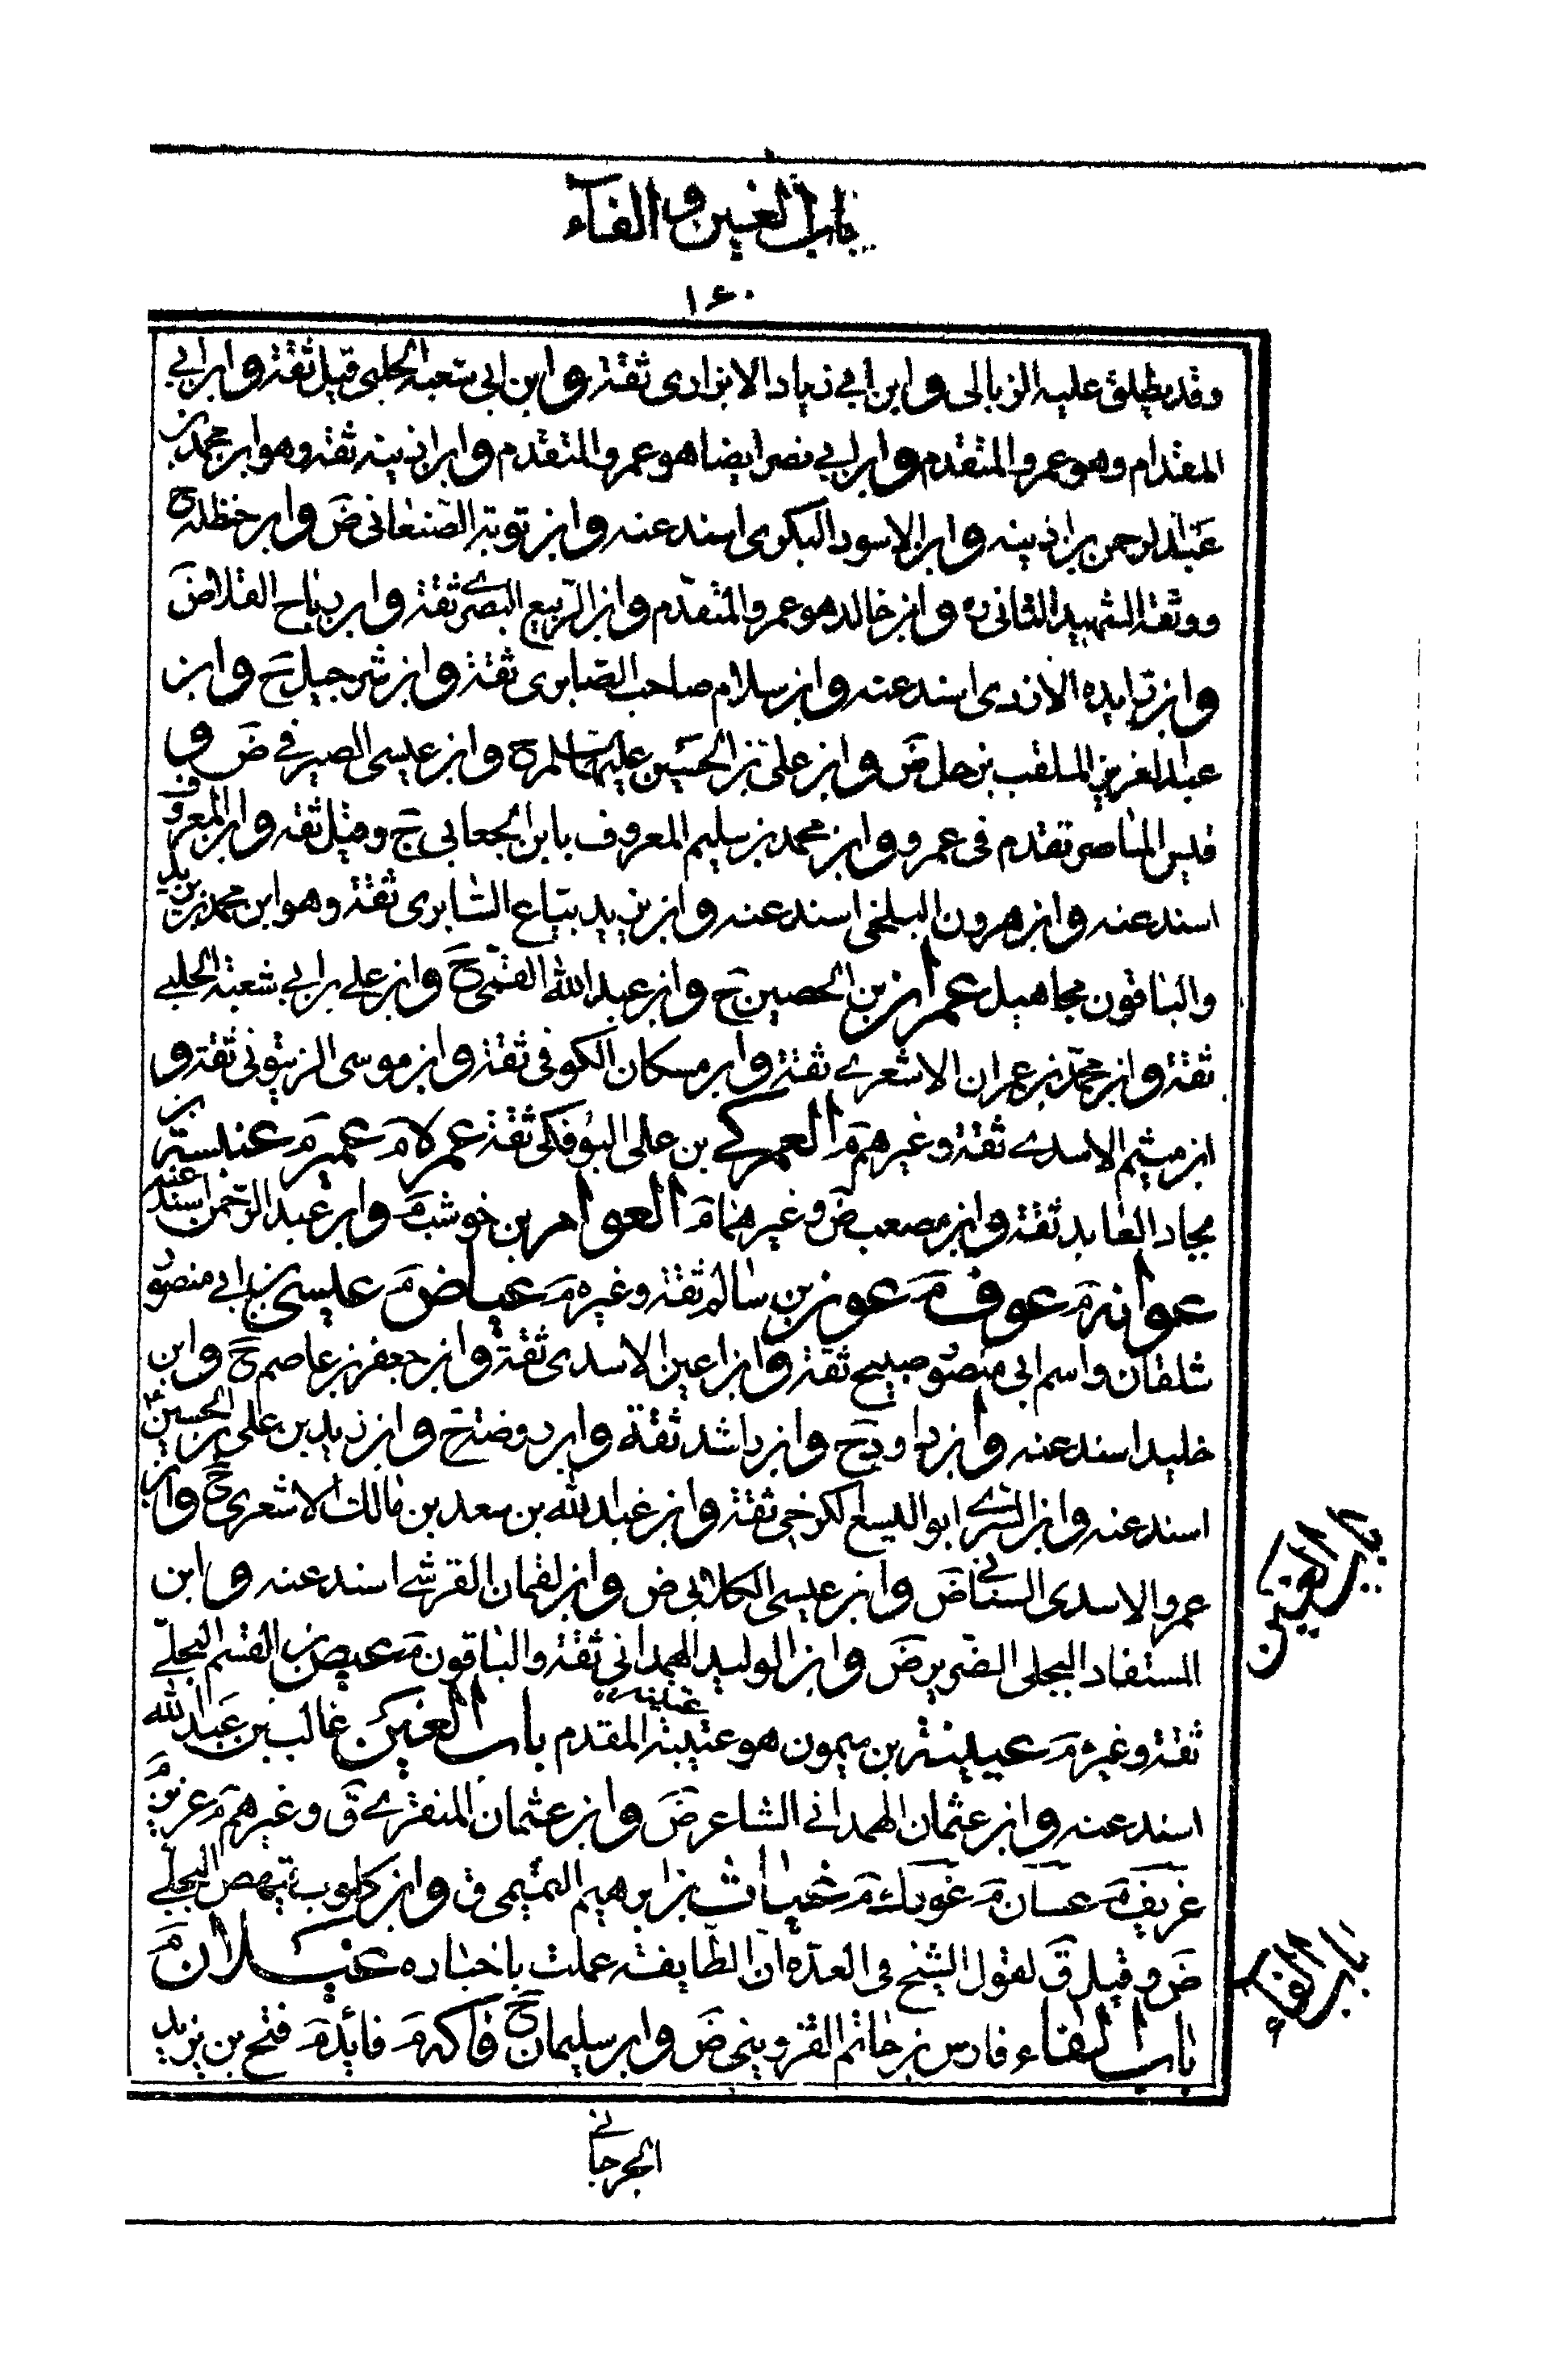 باب الغين والفآء
١۶٠
وقد يطلق عليه الزبالى وابن ابي زياد الابزارى ثقة وابن ابى شعبة الحلبى قيل ثقة وابن ابي
المقدام وهو عمرو المتقدم وابن ابي نصر ايضا هو عمرو المتقدم وابن اذينه ثقه وهو ابن محمد بن
عبد الرحمن بن اذينه وابن الاسود البكرى اسند عنه وابن توبة الصنعانى ض وابن حنظله ح
ووثقه الشهيد الثانى ره وابن خالد هو عمرو المتقدم وابن الربيع البصرى ثقة وابن رباح القلا ض
وابن زايده الازدى اسند عنه وابن سلام صاحب الصابرى ثقة وابن شرجيل ح وابن
عبد العزيز الملقب بزحل ض وابن على بن الحسين عليهما السلم ح وابن عيسى الصيرفي ض و
قيس الماصر تقدم فى عمرو وابن محمد بن سليم المعروف بابن الجعابى ح وقيل ثقه وابن المعروف
اسند عنه وابن هرون البلخى اسند عنه وابن يزيد بياع السابرى ثقة وهو ابن محمد بن يزيد
والباقون مجاهيل عمران بن الحصين ح وابن عبد الله القمى ح وابن على بن ابي شعبة الحلبي
ثقة وابن محمد بن عمران الاشعري ثقة وابن مسكان الكوفى ثقة وابن موسى الزيتونى ثقة و
ابن ميثم الاسدي ثقة وغيرهم م العمركي بن على البوفكى ثقة عمر كام م عمير م عنبسة بن
بجاد العابد ثقة وابن مصعب ض وغيرهما م العوام بن حوشب م وابن عبد الرحمن اسند عنه
عوانه م عوف م عون بن سالم ثقة وغيره م عياض م عيسى بن ابي منصور
شلقان واسم ابى منصور صبيح ثقة وابن اعين الاسدى ثقة وابن جعفر بن عاصم ح وابن
خليد اسند عنه وابن داود ح وابن راشد ثقة وابن روضة ح وابن زيد بن على بن الحسين ع
اسند عنه وابن السري ابو اليسع الكرخى ثقة وابن عبد الله بن سعد بن مالك الاشعرى ح وابن
عمرو الاسدى السناني ض وابن عيسى الكلابى ض وابن لقمان القرشي اسند عنه وابن
المستفاد البجلى الضرير ض وابن الوليد الهمدانى ثقة والباقون م عيص بن القسم البجلي
ثقة وغيره م عيينة بن ميمون هو عتيبة المقدم باب الغين غالب بن عبد الله
اسند عنه وابن عثمان الهمداني الشاعر ض وابن عثمان المنقري ق وغيرهم م عزيز م
غريف م غسان م غويك م غياث بن ابرهيم التميمى ق وابن كلوب بن بيهص البجلي
ض وقيل ق لقول الشيخ فى العدة ان الطايفة عملت باخباره غيلان م
باب الفاء فارس بن حاتم القزوينى ض وابن سليمان ح فاكه م فائدة م فتح بن يزيد
الجرجاني
باب الغين
باب الفاء